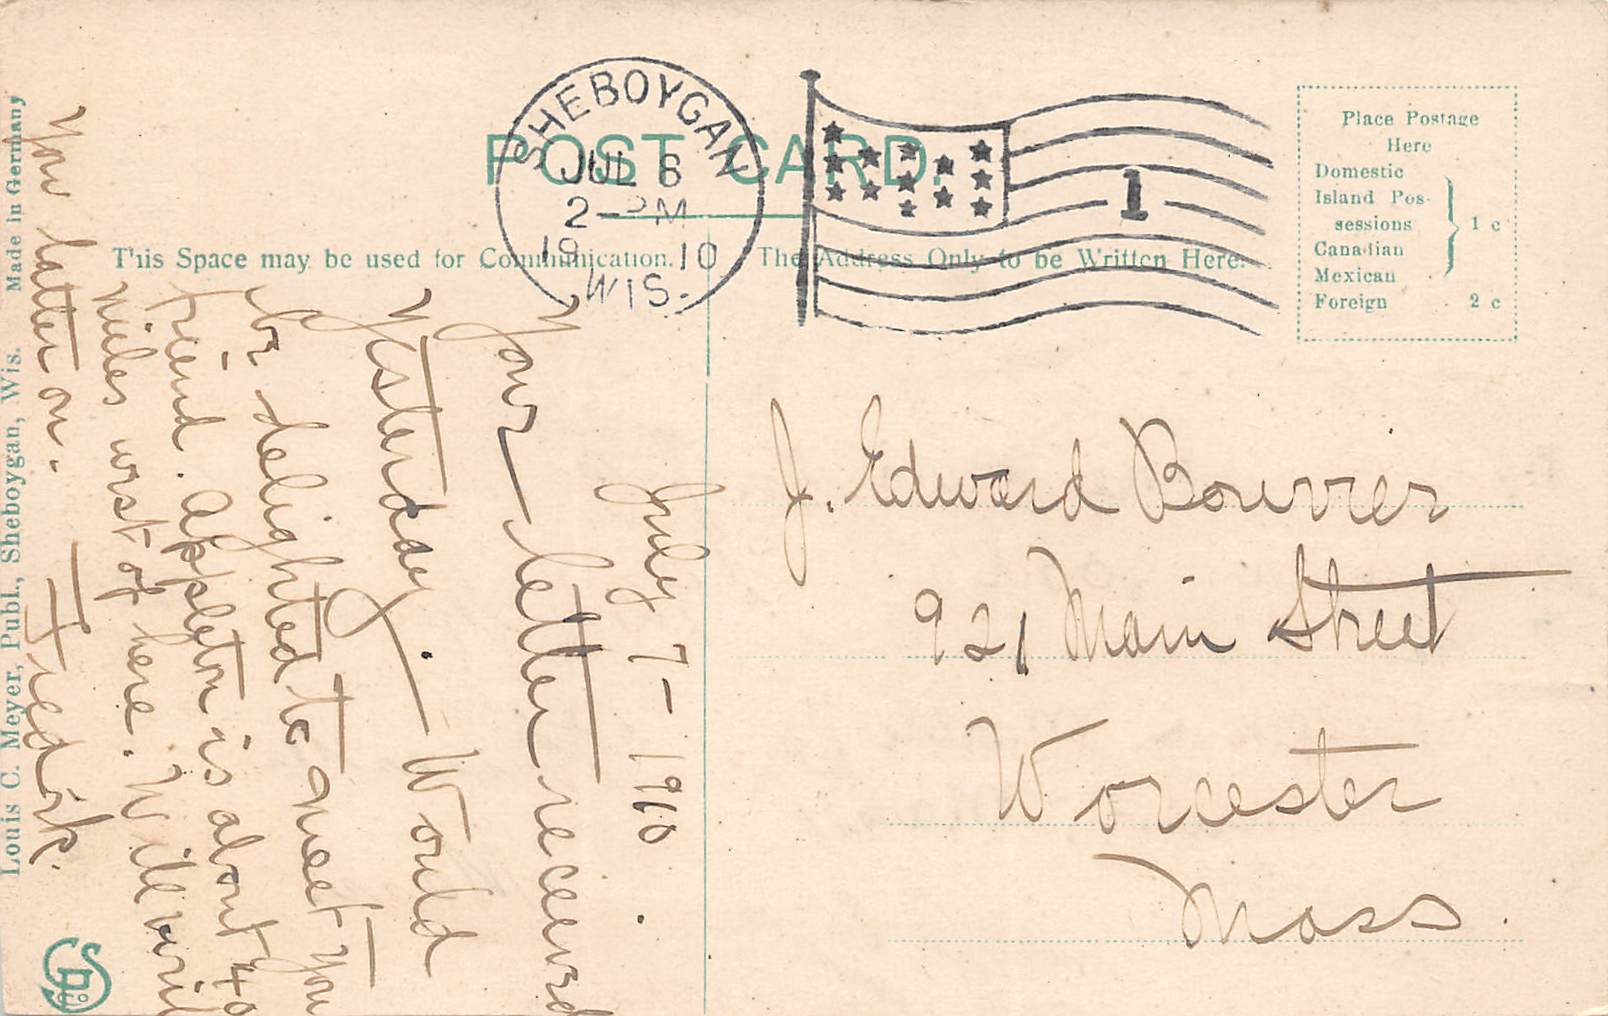 POST CARD.
SHEBOYGAN
JUL 6
2-PM
1910
WIS.
1
Place Postage
Here
Domestic
Island Pos-
sessions
Canadian
Mexican
1 c
Foreign 2 c
This Space may be used for Communication.
The Address Only to be Written Here.
July 7-1910
Your letter received
Yesterday. Would
be delighted to meet you
friend. Appleton is about 40
miles west of here. Will write
You latter on.
J. Edward Bouvier
921 Main Street
Worcester
Mass.
Louis C. Meyer, Publ., Sheboygan, Wis. Made in Germany